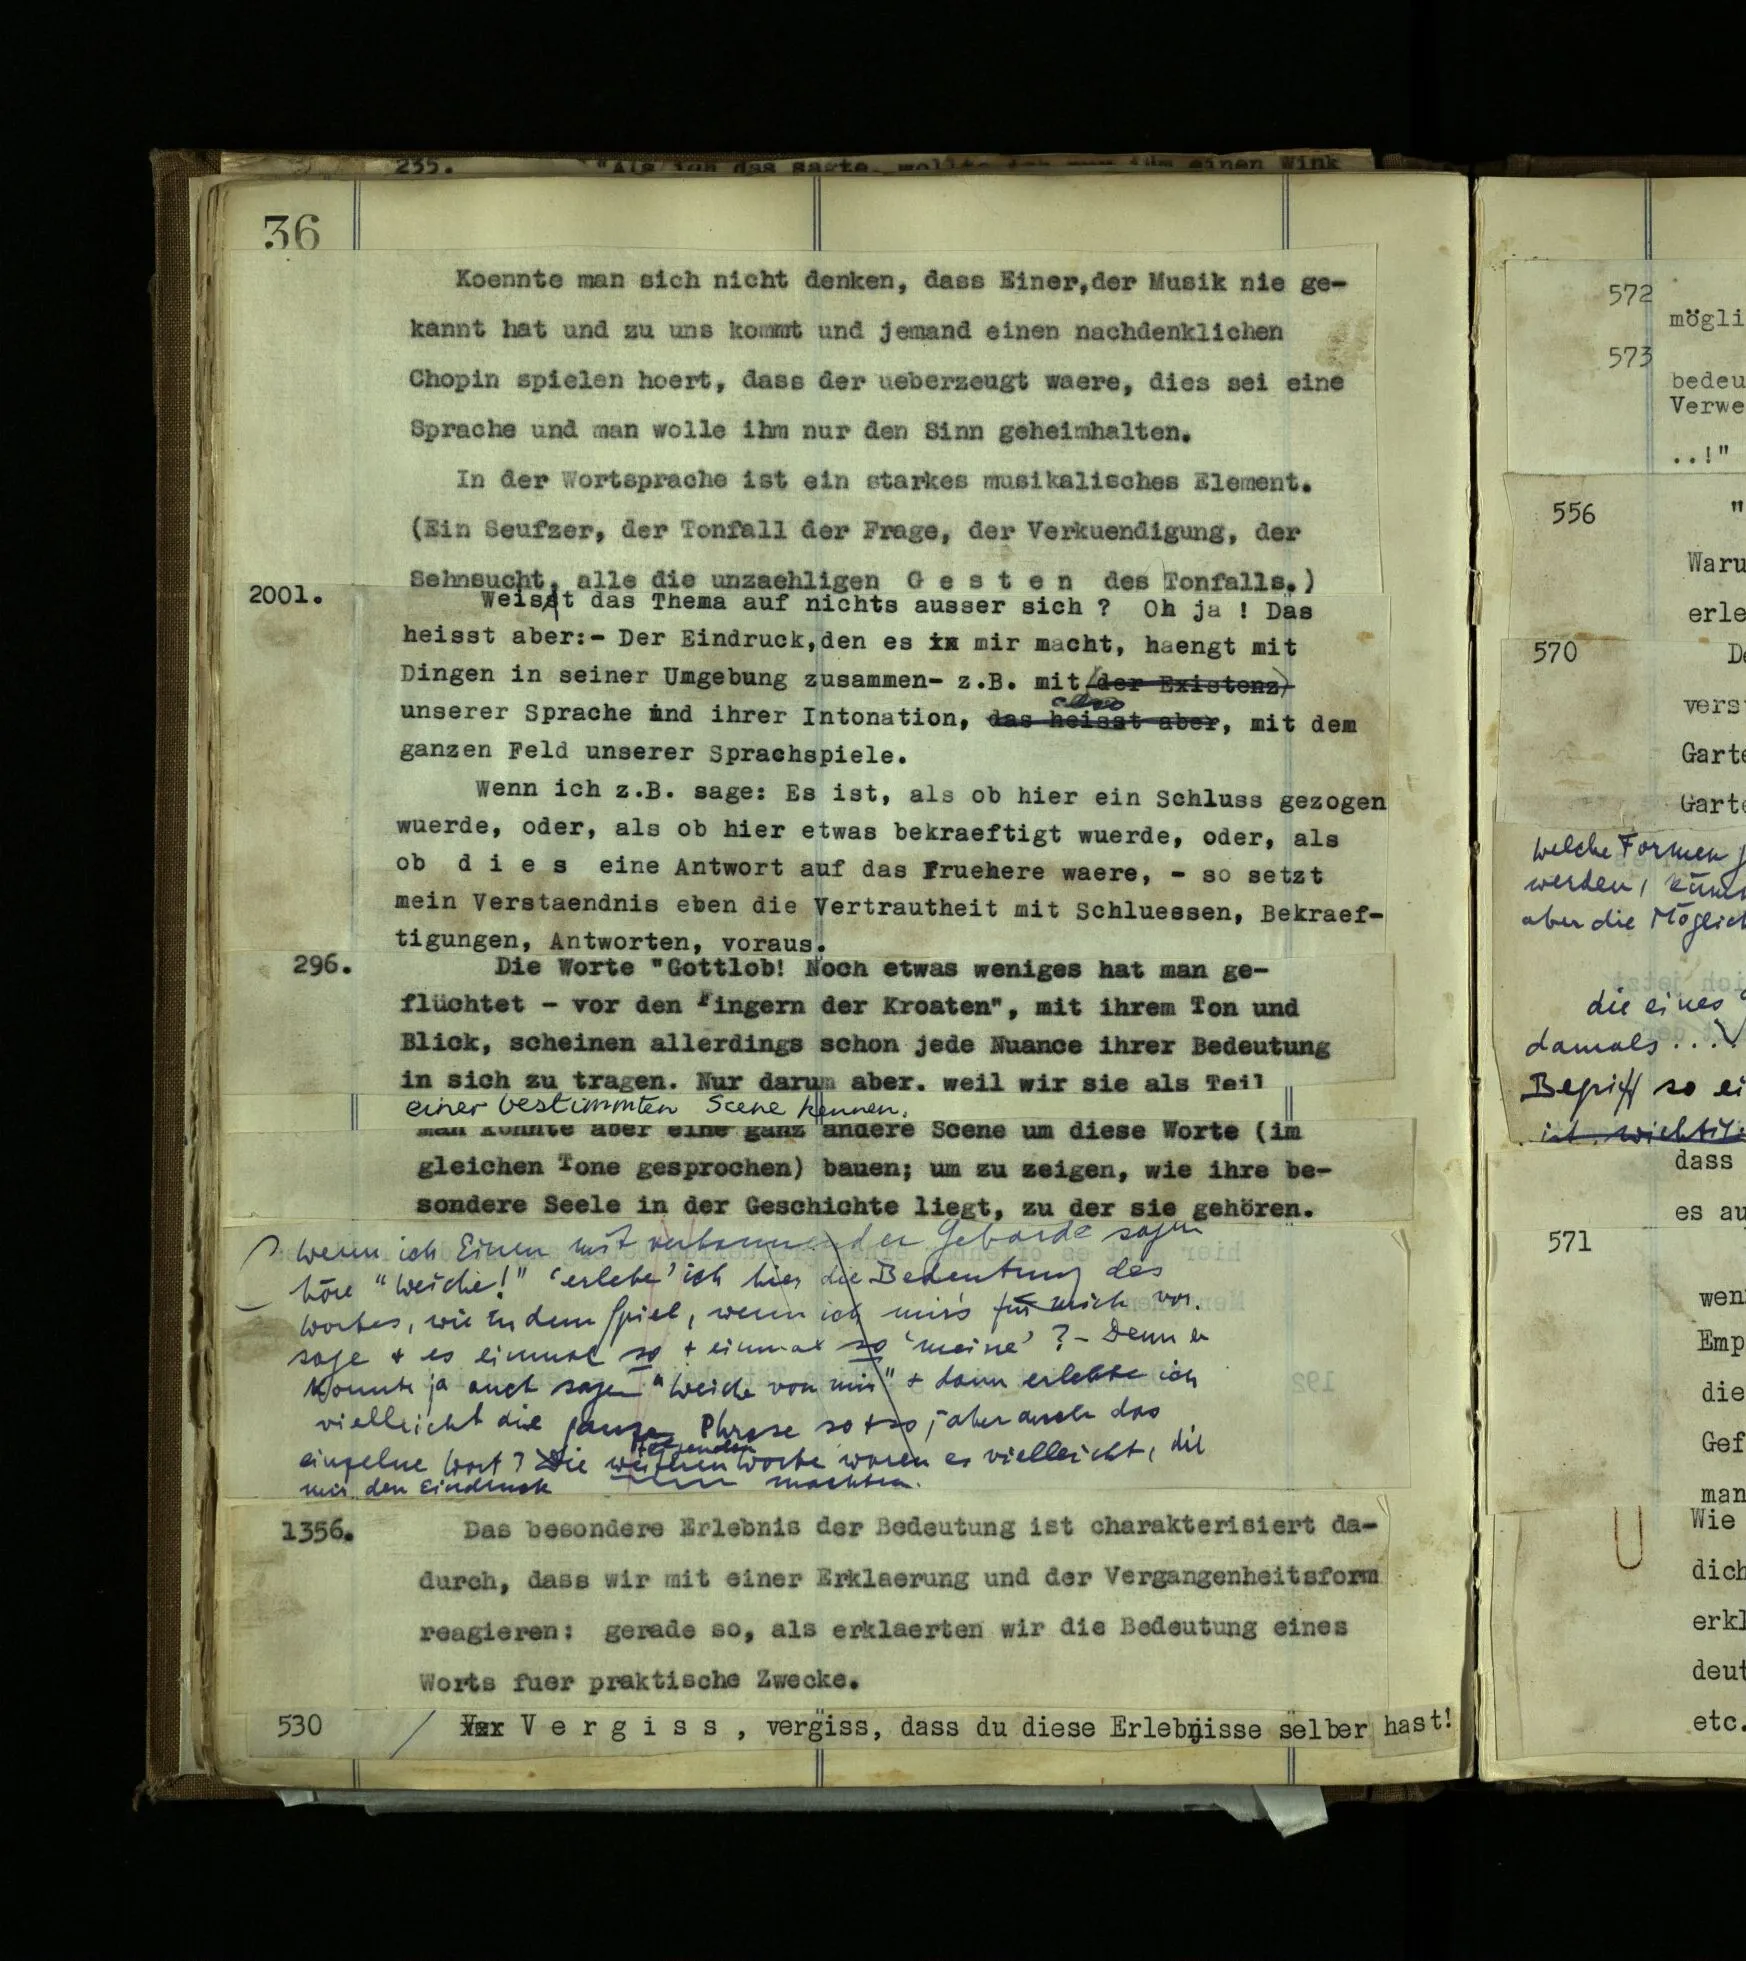 235. "Als ich das sagte, wollte ich nur ihm einen Wink
36
Koennte man sich nicht denken, dass Einer,der Musik nie ge-
kannt hat und zu uns kommt und jemand einen nachdenklichen
Chopin spielen hoert, dass der ueberzeugt waere, dies sei eine
Sprache und man wolle ihm nur den Sinn geheimhalten.
In der Wortsprache ist ein starkes musikalisches Element.
(Ein Seufzer, der Tonfall der Frage, der Verkuendigung, der
Sehnsucht, alle die unzaehligen G e s t e n des Tonfalls.)
2001. Weisst das Thema auf nichts ausser sich ? Oh ja ! Das
heisst aber:- Der Eindruck,den es in mir macht, haengt mit
Dingen in seiner Umgebung zusammen- z.B. mit (der Existenz)
also
unserer Sprache und ihrer Intonation, das heisst aber, mit dem
ganzen Feld unserer Sprachspiele.
Wenn ich z.B. sage: Es ist, als ob hier ein Schluss gezogen
wuerde, oder, als ob hier etwas bekraeftigt wuerde, oder, als
ob d i e s eine Antwort auf das Fruehere waere, - so setzt
mein Verstaendnis eben die Vertrautheit mit Schluessen, Bekraef-
tigungen, Antworten, voraus.
296. Die Worte "Gottlob! Noch etwas weniges hat man ge-
flüchtet - vor den Fingern der Kroaten", mit ihrem Ton und
Blick, scheinen allerdings schon jede Nuance ihrer Bedeutung
in sich zu tragen. Nur darum aber. weil wir sie als Teil
einer bestimmten Scene kennen.
man könnte aber eine ganz andere Scene um diese Worte (im
gleichen Tone gesprochen) bauen; um zu zeigen, wie ihre be-
sondere Seele in der Geschichte liegt, zu der sie gehören.
Wenn ich Einen mit verbannender Gebärde sagen
höre "Weiche!" 'erlebe' ich hier die Bedeutung des
Wortes, wie in dem Spiel, wenn ich mir's für mich vor.
sage + es einmal so + einmal so 'meine' ? – Denn er
konnte ja auch sagen "Weiche von mir" + dann erlebte ich
vielleicht die ganze Phrase so + so; aber auch das
einzelne Wort? Die weiteren Worte waren es vielleicht, die
mir den Eindruck machten.
1356. Das besondere Erlebnis der Bedeutung ist charakterisiert da-
durch, dass wir mit einer Erklaerung und der Vergangenheitsform
reagieren: gerade so, als erklaerten wir die Bedeutung eines
Worts fuer praktische Zwecke.
530 / V e r g i s s , vergiss, dass du diese Erlebnisse selber hast!
572
mögli
573
bedeu
Verwe
..!"
556 "
Waru
erle
570 De
vers
Garte
Garte
welche Formen
werden,
aber die Möglich
die eines
damals...
Begriff so ei
ist wichtig
dass
es au
571
wen
Emp
die
Gef
man
Wie
dich
erkl
deut
etc.